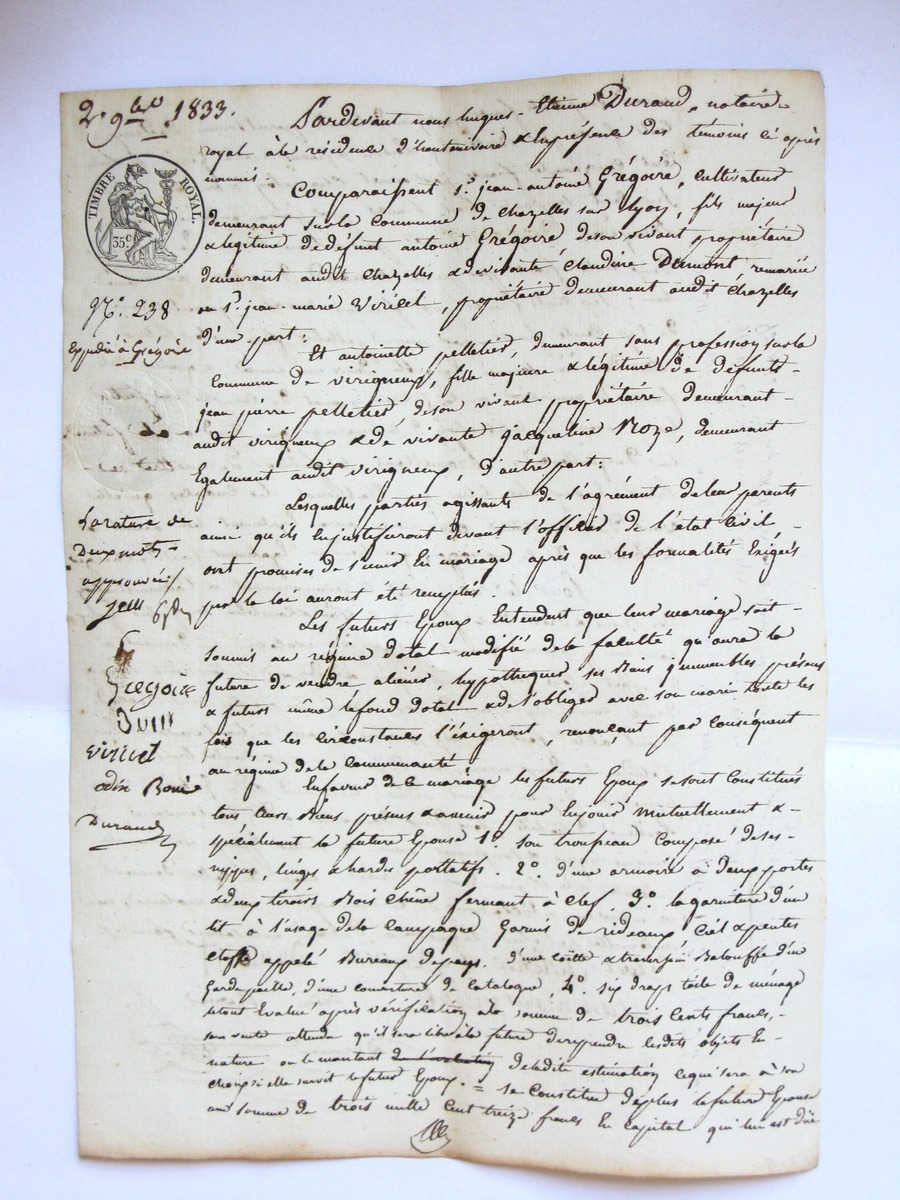 2. 9bre 1833.
TIMBRE ROYAL.
35c
No. 238
Expédié à Grégoire
La rature de
Deux mots
approuvée
Gregoire
viricel
odin
Durand
Pardevant nous Etienne Durand, notaire
royal à la résidence d' & en présence des témoins ci après
nommés :
Comparaissent sr. jean-antoine Grégoire, cultivateur
demeurant sur la commune de Chazelles sur lyon, fils majeur
& légitime de défunt antoine Grégoire, de son vivant propriétaire
demeurant audit Chazelles & de vivante Claudine Dumont remariée
au sr. jean-marie Viricel, propriétaire demeurant audit Chazelles
d'une part :
Et antoinette pelletier, demeurant sans profession sur la
Commune de virigneux, fille majeure & légitime de défunts
jean pierre pelletier, de son vivant propriétaire demeurant
audit virigneux & de vivante jacqueline Noze, demeurant
Egalement audit virigneux, d'autre part :
Lesquelles parties agissants de l'agrément de leur parents
ainsi qu'ils En justifieront devant l'officier de l'état civil
ont promises de s'unir En mariage après que les formalités Exigées
par la loi auront été remplies.
Les futurs Epoux Entendent que leur mariage soit
soumis au régime dotal modifié de la faculté qu'aura la
future de vendre aliéner, hypothequer ses biens immeubles présens
& futurs même le fond dotal & de s'obliger avec son mari toute les
fois que les circonstances l'éxigeront, renonçant par Conséquent
au régime de la Communauté
En faveur de la mariage les futurs Epoux se sont Constitués
tous leurs biens présens & avenir pour En jouir mutuellement &
spécialement la future Epouse 1º. son trousseau Composé de ses
nippes, linges & hardes portatifs. 2º. d'une armoire à deux portes
& deux tiroirs bois chêne fermant à clef, 3º. la garniture d'un
lit à l'usage de la Campagne Garnis de rideaux Ciel & pentes
Etoffe appelé Bureaux de pays. d'une coëtte & traversin Balouffe d'un
Garde paille, d'une couverture de Catalogne, 4º. six draps toile de ménage
le tout Evalué après vérification à la somme de trois Cents francs,
sans vente attendu qu'il sera libre à la future de reprendre lesdits objets En
nature ou le montant de ladite estimation ce qui sera à son
choix si elle survit le futur Epoux. = se Constitue de plus la future Epouse
une somme de trois mille Cent treize francs En Capital qui lui est dûe